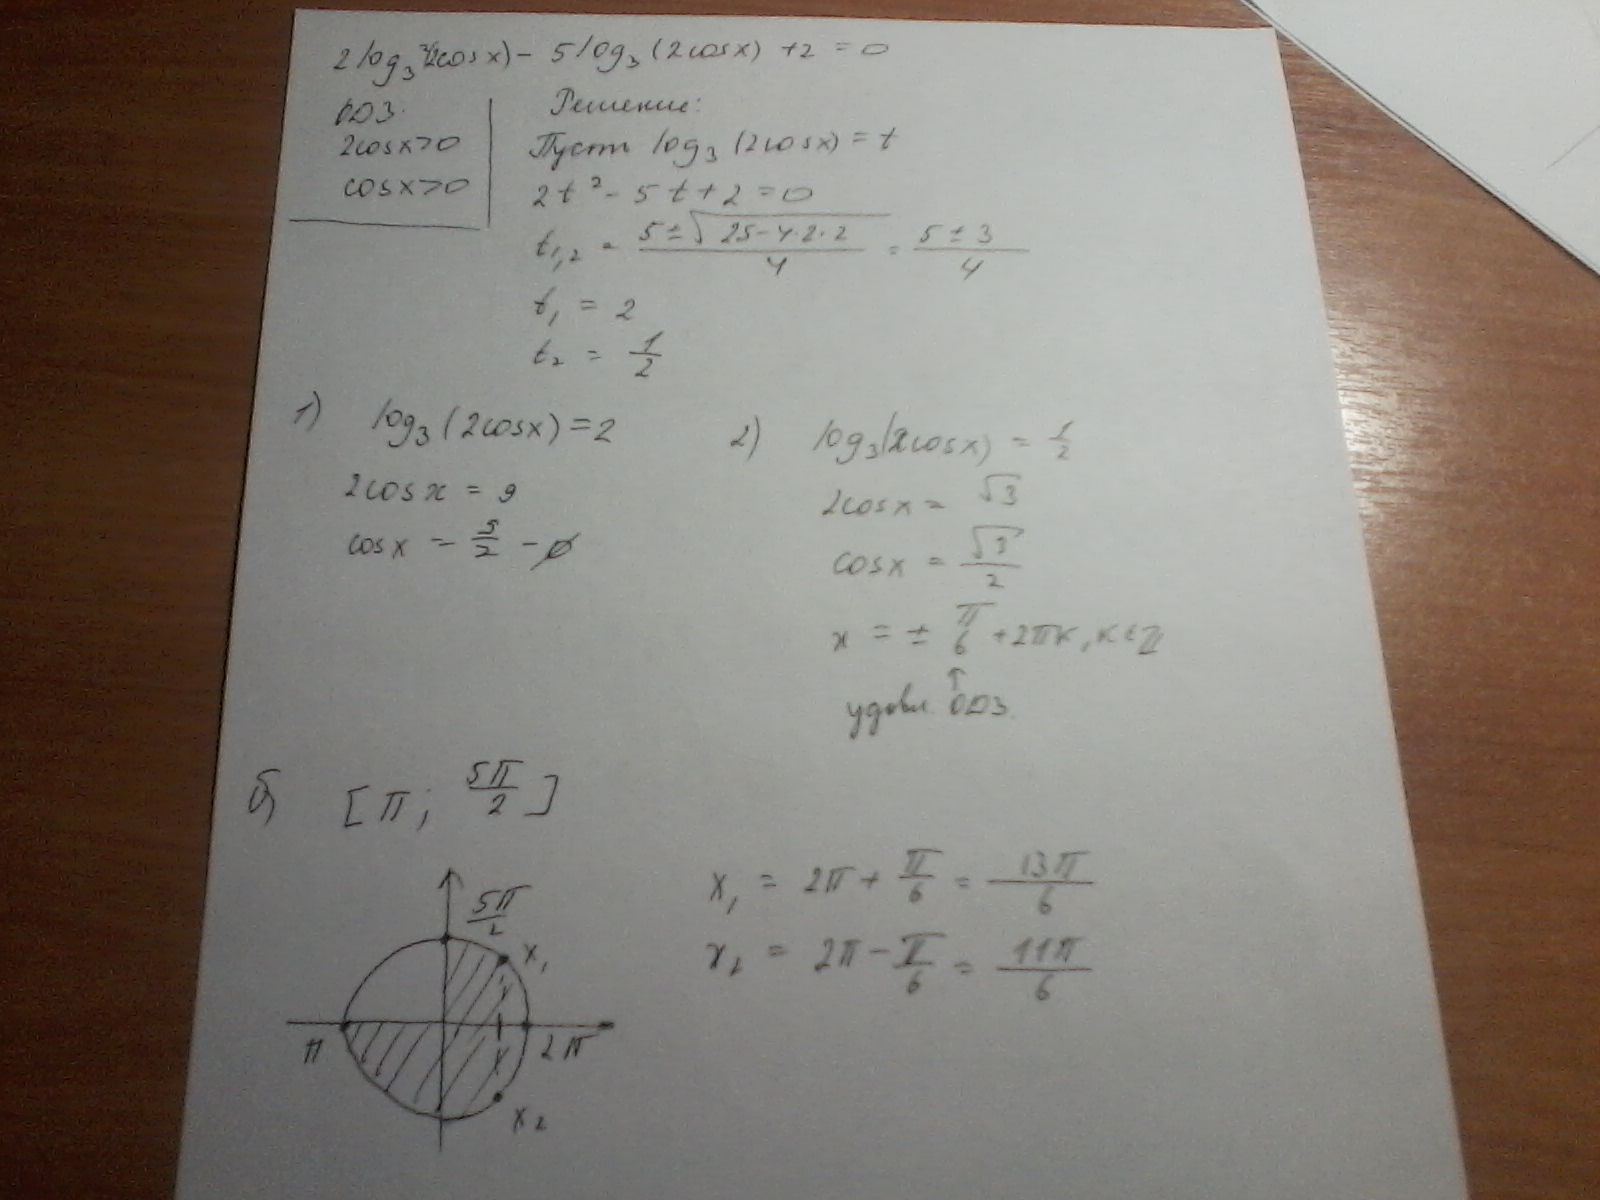 2log₃²(2cosx) - 5log₃(2cosx) + 2 = 0
ОДЗ:
2cosx>0
cosx>0
Решение:
Пусть log₃(2cosx) = t
2t² - 5t + 2 = 0
t₁,₂ = (5±√(25-4·2·2))/4 = (5±3)/4
t₁ = 2
t₂ = 1/2
1) log₃(2cosx) = 2
2cosx = 9
cosx = 9/2 - ∅
2) log₃(2cosx) = 1/2
2cosx = √3
cosx = √3/2
x = ± π/6 + 2πк, к∈Z
↑
удовл. ОДЗ.
б) [π; 5π/2]
5π/2
x₁
π
2π
x₂
x₁ = 2π + π/6 = 13π/6
x₂ = 2π - π/6 = 11π/6